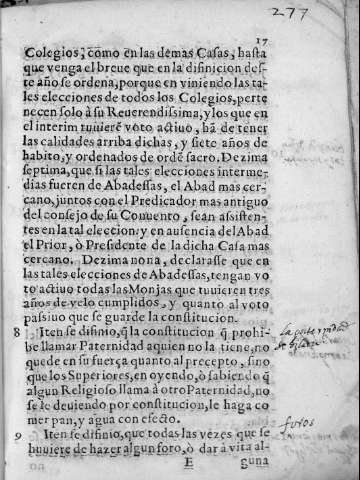 277
17
Colegios, cõmo en las demas Casas, hasta
que venga el breue que en la difinicion des-
te año se ordena, porque en viniendo las ta-
les elecciones de todos los Colegios, perte
necen solo à su Reuerendissima, y los que en
el interim tuuierẽ voto actiuo, hã de tener
las calidades arriba dichas, y siete años de
habito, y ordenados de ordẽ sacro. Dezima
septima, que si las tales elecciones interme-
dias fueren de Abadessas, el Abad mas cer-
cano, juntos con el Predicador mas antiguo
del consejo de su Conuento, sean assisten-
tes en la tal eleccion: y en ausencia del Abad
el Prior, ò Presidente de la dicha Casa mas
cercano. Dezima nona, declarasse que en
las tales elecciones de Abadessas, tengan vo
to actiuo todas las Monjas que tuuieren tres
años de velo cumplidos, y quanto al voto
passiuo que se guarde la constitucion.
8 Iten se difinio, q̃ la constitucion q̃ prohi-
be llamar Paternidad a quien no la tiene, no
quede en su fuerça quanto al precepto, sino
que los Superiores, en oyendo, ò sabiendo q̃
algun Religioso llama à otro Paternidad, no
se le deuiendo por constitucion, le haga co
mer pan, y agua con efecto.
foros
9 Iten se difinio, que todas las vezes que se
huuiere de hazer algun foro, ò dar à vita al-
E guna